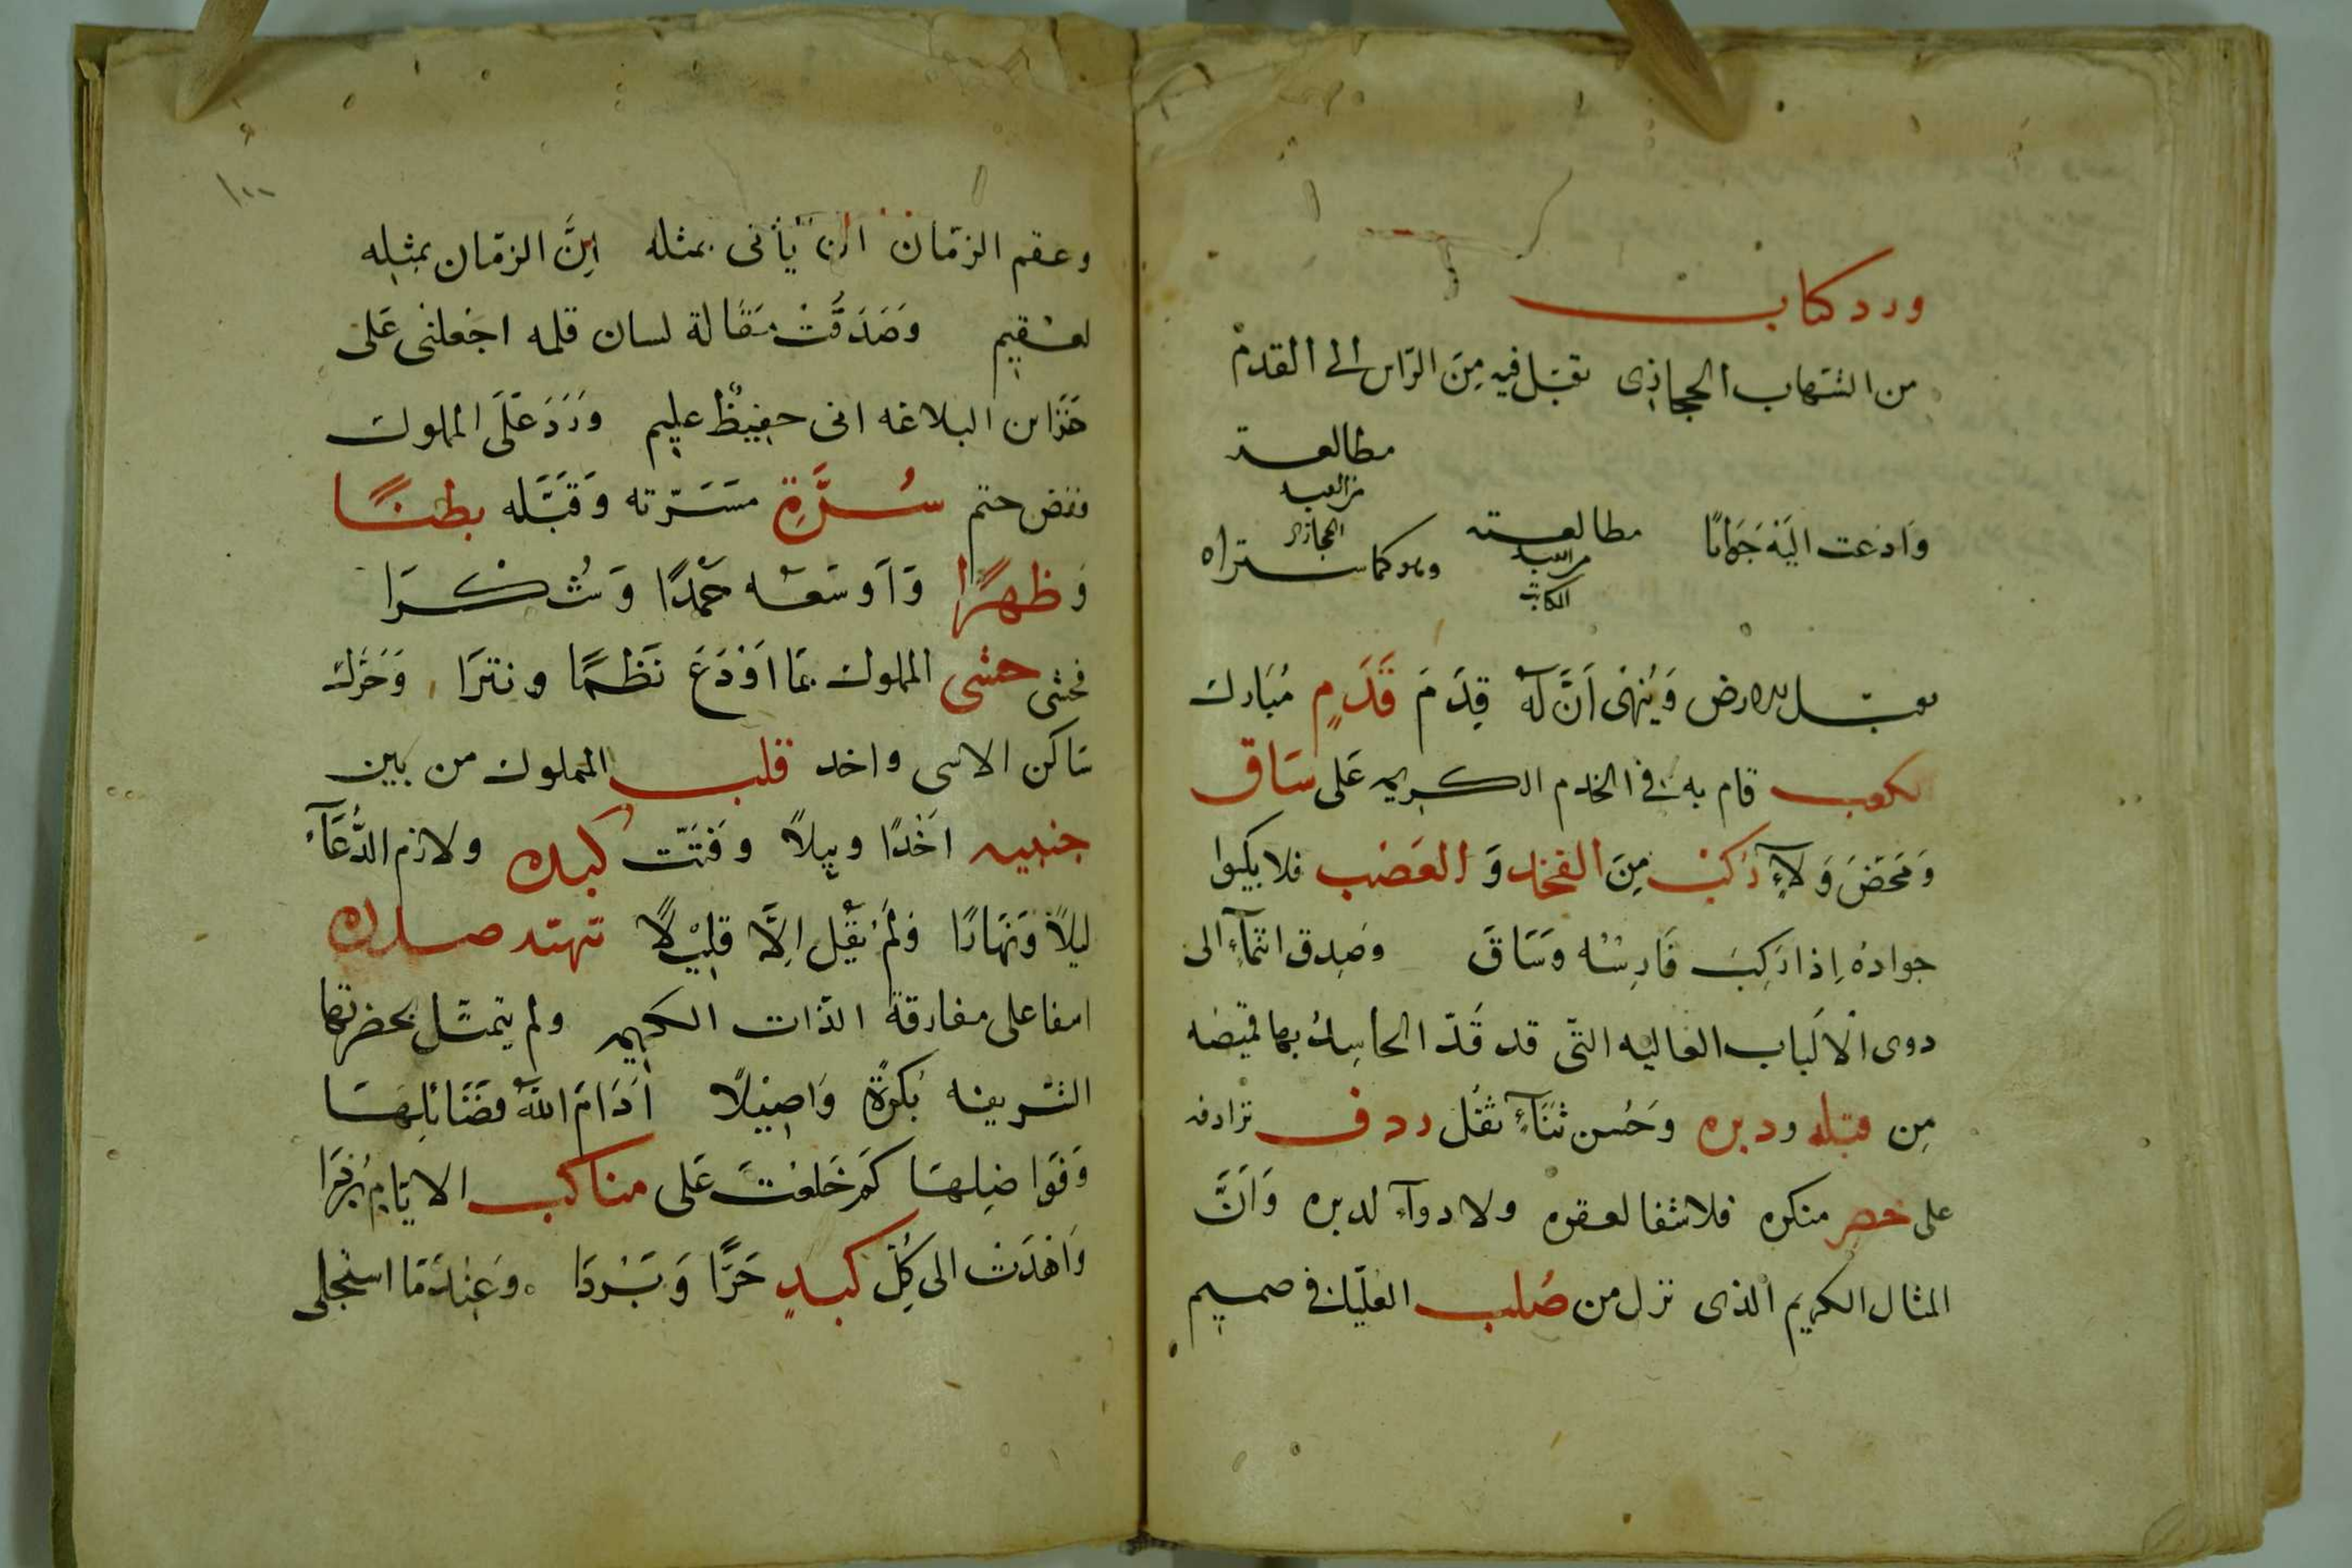 ورد كتاب
من الشهاب الحجازى تقبل فيه مِنَ الرّاس الى القدم
مطالعة
من العبد
الحجازى
وَاَدعت اليْه جَوابًا مطالعته وهو كما ستراه
من العبد
الكاتب
يقبّل الارض وَيُنهى اَنَّ لَهُ قِدَمَ قَدَمٍ مُبَارك
لكعب قام به فى الخدم الكريمه عَلى سَاق
وَمَحَضَ وَلآءٍ رَكب مِنَ الفخد وَ العَصَب فلا يكبوا
جوادهُ اِذا رَكِبَ فَارِسُه وَسَاقَ وصَدق انتمآءٍ الى
دوى الالباب الغاليه التّى قد قَدّ الحاسِدُ بها قميصَه
مِن قبله ودبره وَحُسن ثنَآءٍ ثقُل ردف ترادفه
على خصر منكره فلا شفا لعقره ولا دوآء لدبره وَاَنَّ
المثال الكريم الذى نزل من صُلب العُليَا فى صميم
١٠٠
وعقم الزمَان ان يَأتى بمثله اِنَّ الزمَان بمثِله
لعَقِيم وَصَدَقَتْ مقَالة لسان قلمه اجْعلنى عَلى
خَزاىن البلاغه انى حفِيظٌ عليم وَرَدَ عَلَى المملوك
ففض ختم سُرَّةِ مسَرّته وَقبَّله بطنًا
وَظهرًا وَاَوسَعَه حَمْدًا وَشُكرَا
فحشى حشى المملوك بمَا اَوْدَعَ نَظمًا ونثرَا وَحَرّك
سَاكن الاسى واخد قلب المملوك من بين
جنبيه اَخْدًا وبيلاً وَفَتّت كبده ولازم الدُّعَآء
ليلاً وَنَهَارًا وَلَمْ يقُل اِلَّا قلِيْلًا تنهّد صدره
اسفا على مفارقة الذّات الكريمه ولم يتمثّل بحضرتها
الشريفه بُكرَةً وَاصِيْلاً اَدَامَ اللهُ فضَائلهَا
وَفَوَاضِلهَا كَم خَلعَتْ عَلى مناكب الايّام بُردَا
وَاهدَت الى كُلّ كبدٍ حَرًّا وَبَرْدَا وَعِندَمَا استجلى